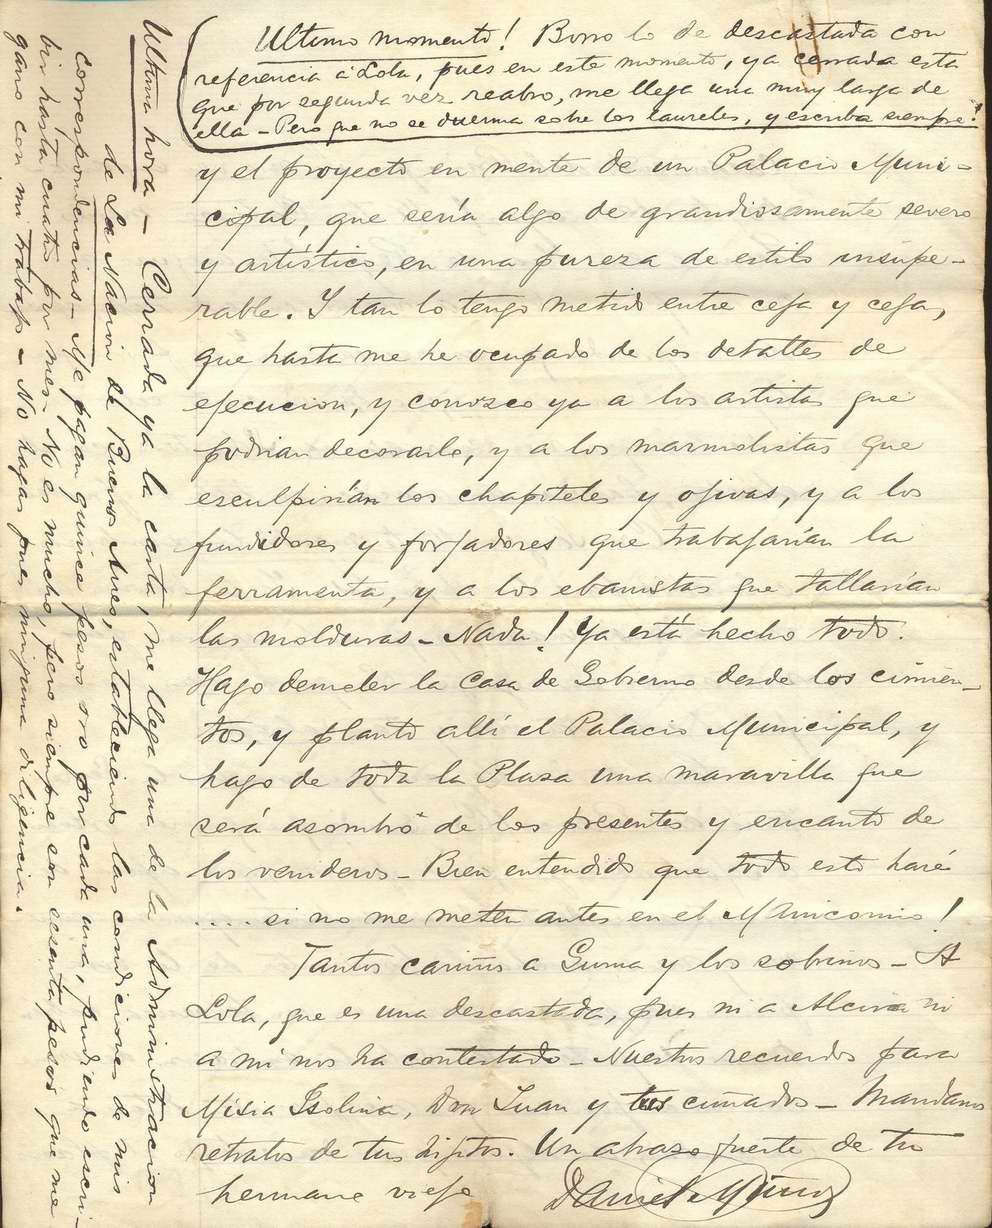 Ultimo momento! Borro lo de descastada con
referencia á Lola, pues en este momento, ya cerrada esta
que por segunda vez reabro, me llega una muy larga de
ella - Pero que no se duerma sobre los laureles, y escriba siempre!
y el proyecto en mente de un Palacio Muni-
cipal, que sería algo de grandiosamente severo
y artístico, en una pureza de estilo insupe-
rable. Y tan lo tengo metido entre ceja y ceja,
que hasta me he ocupado de los detalles de
ejecucion, y conozco ya a los artistas que
podrian decorarlo, y a los marmolistas que
esculpirían los chapiteles y ojivas, y a los
fundidores y forjadores que trabajarían la
ferramenta, y a los ebanistas que tallarían
las molduras - Nada! Ya está hecho todo.
Hago demoler la Casa de Gobierno desde los cimien-
tos, y planto allí el Palacio Municipal, y
hago de toda la Plaza una maravilla que
será asombro de los presentes y encanto de
los venideros - Bien entendido que todo esto haré
.... si no me meten antes en el Manicomio!
Tantos cariños a Guma y los sobrinos - A
Lola, que es una descastada, pues ni a Alcira ni
a mí nos ha contestado - Nuestros recuerdos para
Misia Isolina, Don Juan y tus cuñados - Mandanos
retratos de tus hijitos. Un abrazo fuerte de tu
hermano viejo Daniel Muñoz
Ultima hora - Cerrada ya la carta, me llega una de la Administracion
de La Nacion de Buenos Aires, estableciendo las condiciones de mis
correspondencias - Me pagan quince pesos oro por cada una, pudiendo escri-
bir hasta cuatro por mes - No es mucho, pero siempre son sesenta pesos que me
gano con mi trabajo - No hagas pues ninguna diligencia.